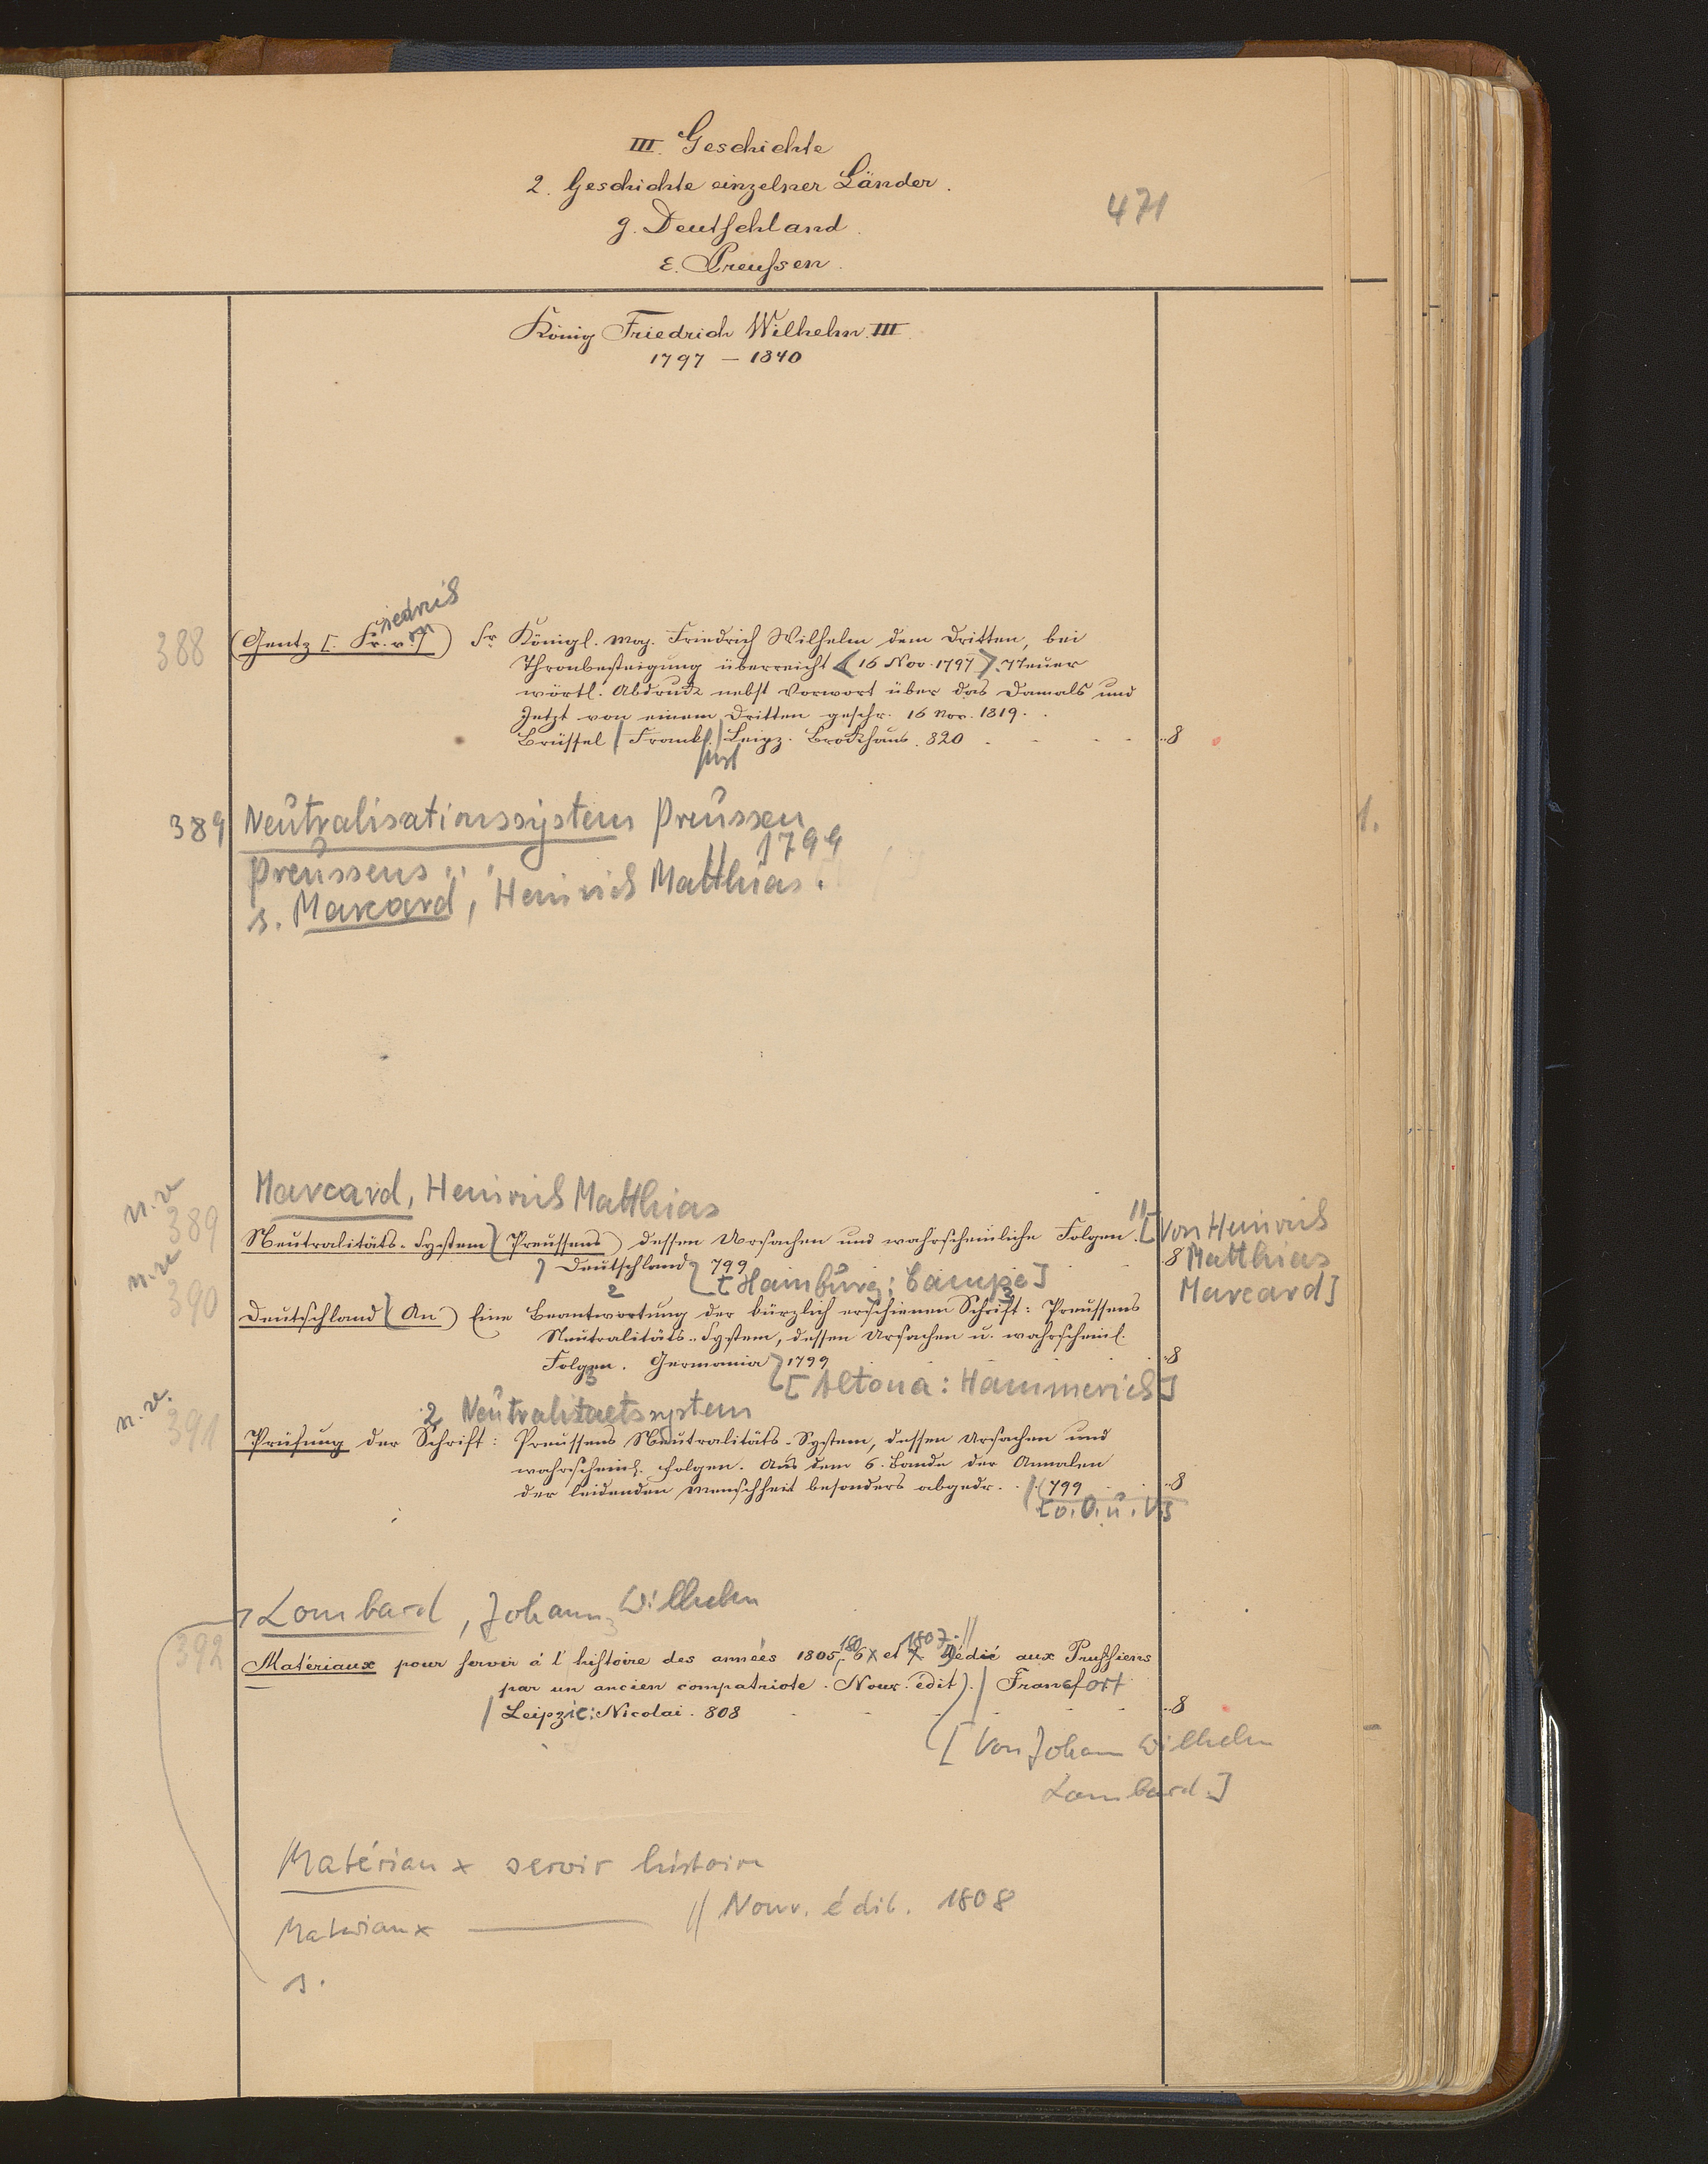 III. Geschichte
2. Geschichte einzelner Länder.
471
g. Deutschland.
ε. Preussen.
König Friedrich Wilhelm III.
1797 – 1840
iedrich
388 (Gentz [: Fr. v. ]) Sr. Königl. Maj. Friedrich Wilhelm dem Dritten, bei
Thronbesteigung überreicht <16 Nov. 1797>. Neuer
wörtl. Abdruck nebst Vorwort über das Damals und
Jetzt von einem Dritten geschr. 16 Nov. 1819.
Brüssel / Frankf. / Leipz. Brockhaus. 820 8
389 Neutralisationssystem Preussen
Preussens 1799
s. Marcard, Heinrich Matthias.
1.
Marcard, Heinrich Matthias
n. v.
389 Neutralitäts-System (Preussens) dessen Ursachen und wahrscheinliche Folgen. // [Von Heinrich
Deutschland 799 8 Matthias
[Hamburg: Campe] Marcard]
n. v.
2 3
390 Deutschland (An) Eine Beantwortung der kürzlich erschienen Schrift: Preussens
Neutralitäts-System, dessen Ursachen u. wahrscheinl.
Folgen. Germania 1799 8
3 [Altona: Hammerich]
n. v.
2 Neutralitaetssystem
391 Prüfung der Schrift: Preussens Neutralitäts-System, dessen Ursachen und
wahrscheinl. Folgen. Aus dem 6. Bande der Annalen
der leidenden Menschheit besonders abgedr. / (799 8
[o. O. u. V]
Lombard, Johann Wilhelm
3 180 1807. //
392 Matériaux pour servir à l'histoire des années 1805, 6 et 7. Dédié aux Prussiens
par un ancien compatriote. Nouv. édit). / Francfort
/ Leipzic: Nicolai. 808 8
[Von Johann Wilhelm
Lombard.]
Matériaux servir histoire
Materiaux ——— // Nouv. édit. 1808
s.